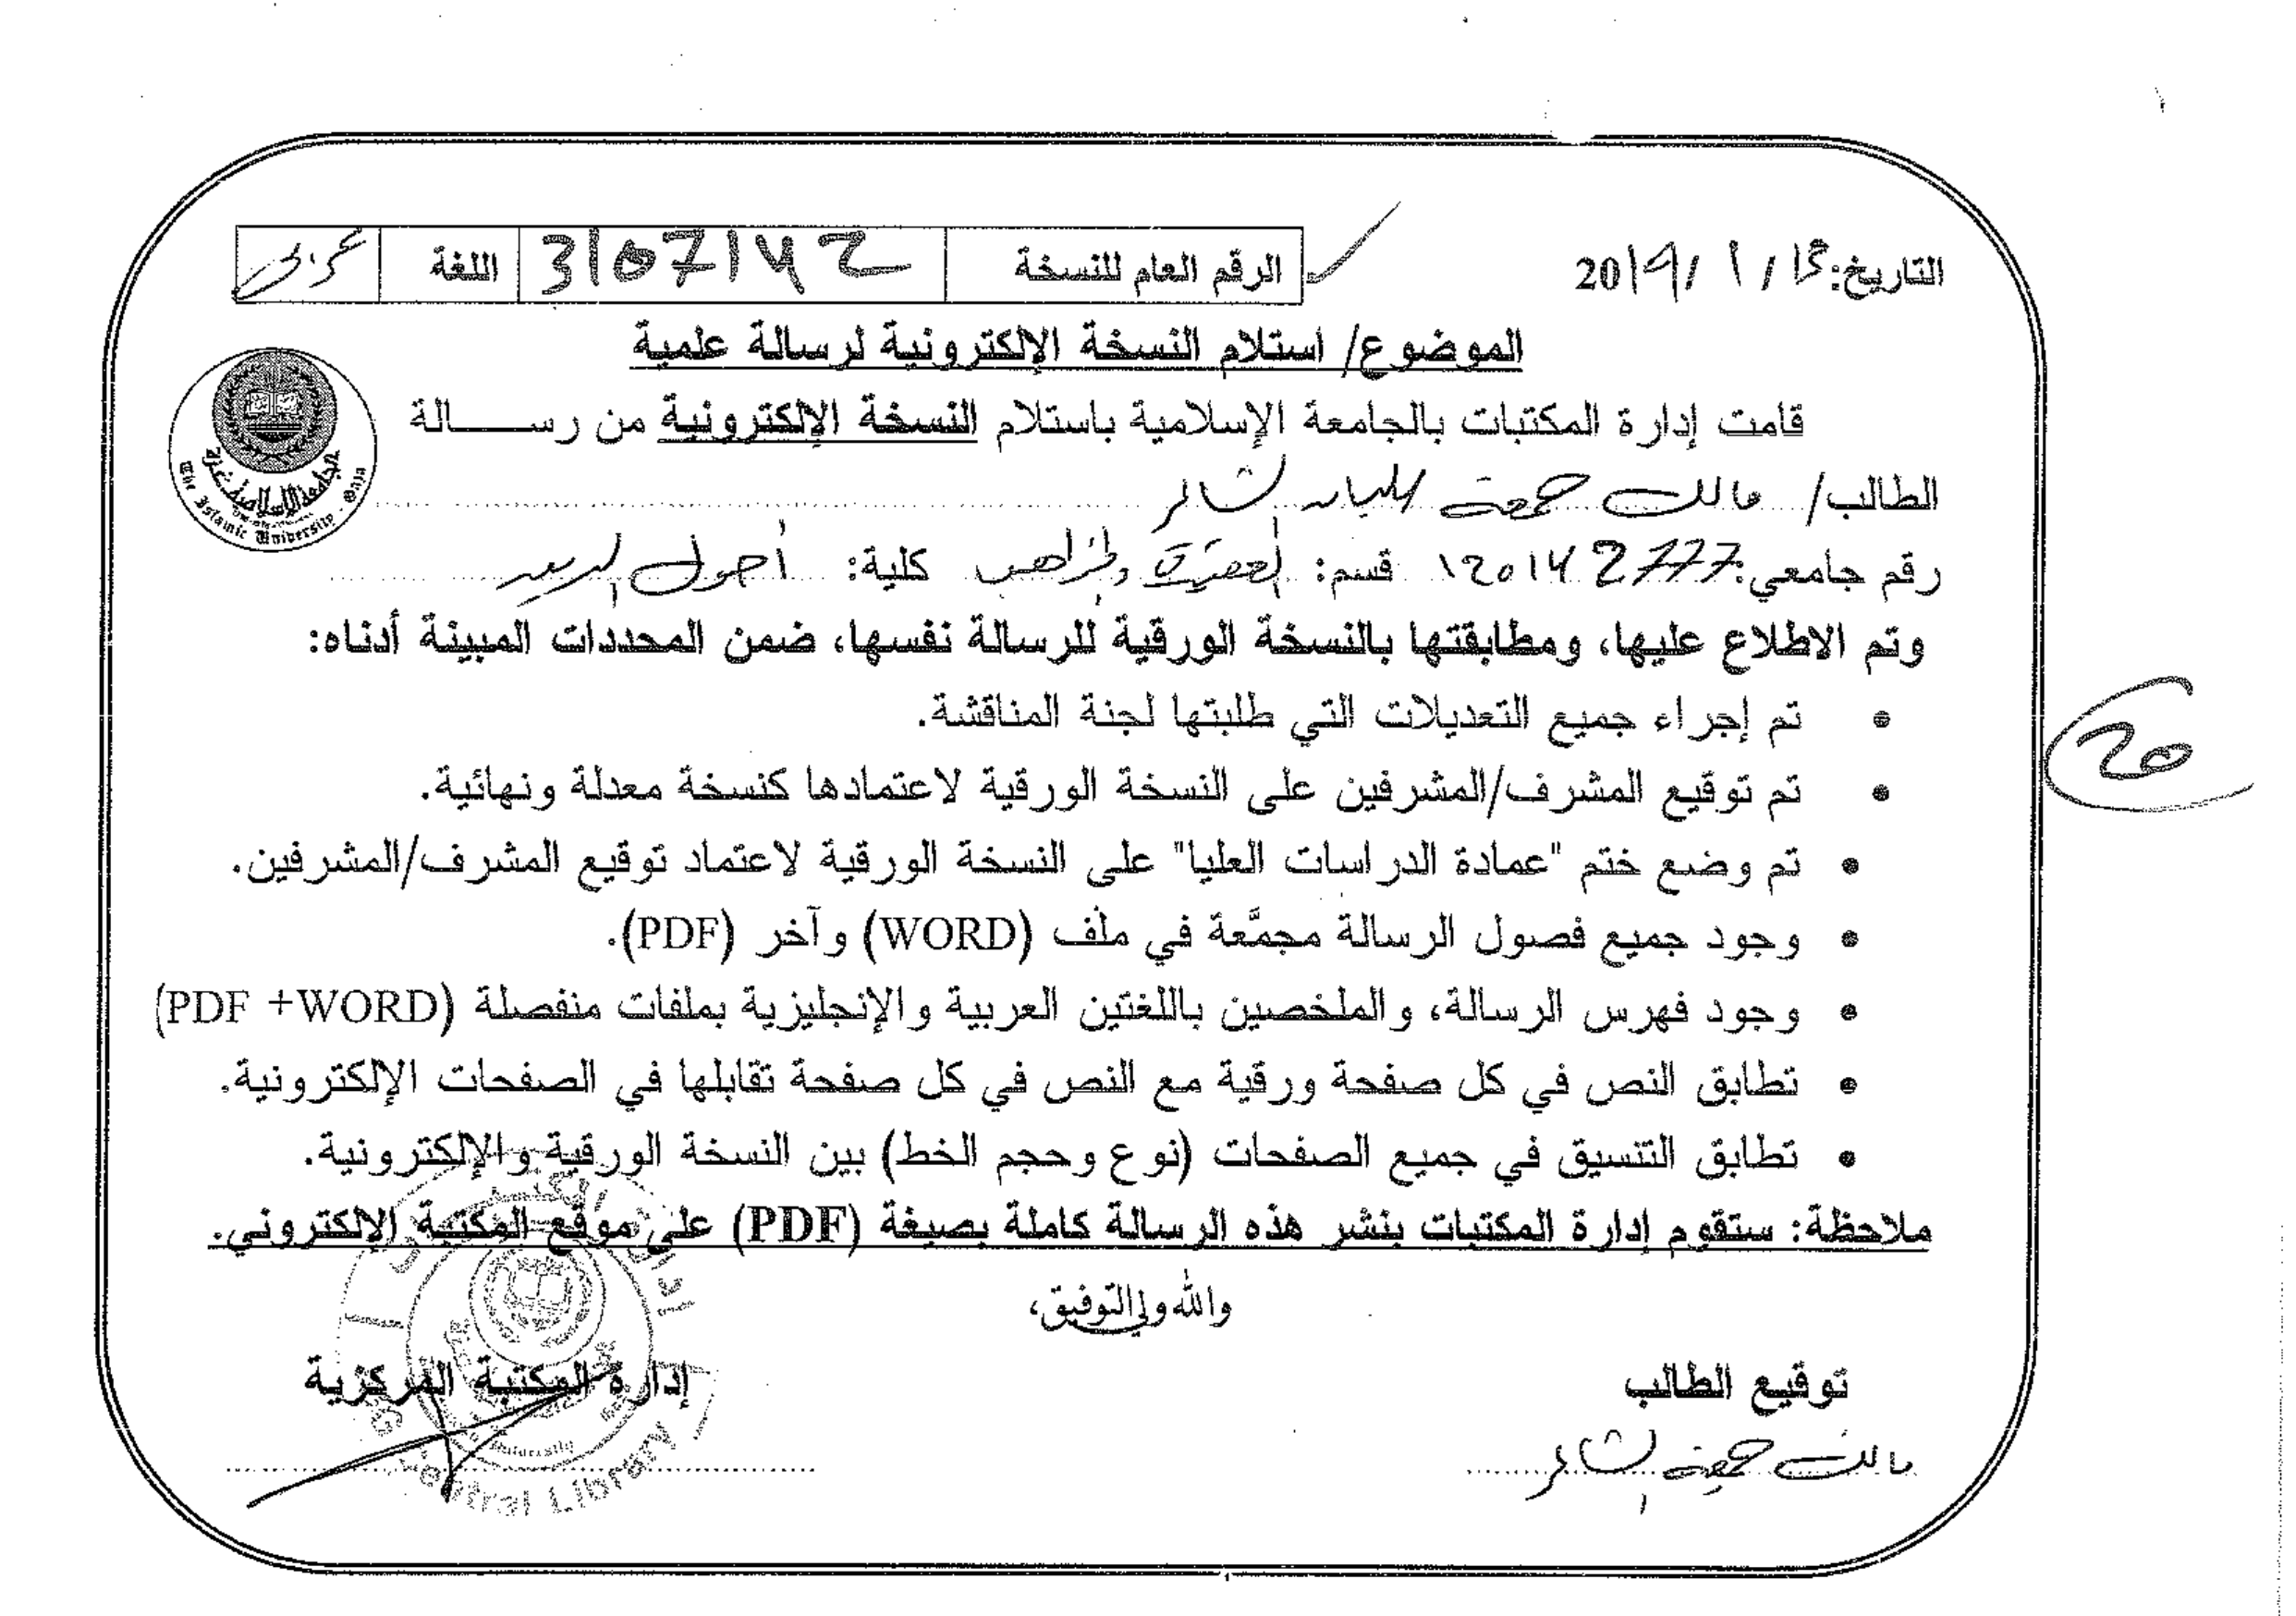 التاريخ: / 1 / 2019
الرقم العام للنسخة 3107142 اللغة عربي
الموضوع/ استلام النسخة الإلكترونية لرسالة علمية
قامت إدارة المكتبات بالجامعة الإسلامية باستلام النسخة الإلكترونية من رسـالة
الطالب/ مالك جمعة الشاعر
رقم جامعي: 120142777 قسم: العقيدة والمذاهب كلية: أصول الدين
وتم الاطلاع عليها، ومطابقتها بالنسخة الورقية للرسالة نفسها، ضمن المحددات المبينة أدناه:
• تم إجراء جميع التعديلات التي طلبتها لجنة المناقشة.
• تم توقيع المشرف/المشرفين على النسخة الورقية لاعتمادها كنسخة معدلة ونهائية.
• تم وضع ختم "عمادة الدراسات العليا" على النسخة الورقية لاعتماد توقيع المشرف/المشرفين.
• وجود جميع فصول الرسالة مجمَّعة في ملف (WORD) وآخر (PDF).
• وجود فهرس الرسالة، والملخصين باللغتين العربية والإنجليزية بملفات منفصلة (PDF +WORD)
• تطابق النص في كل صفحة ورقية مع النص في كل صفحة تقابلها في الصفحات الإلكترونية.
• تطابق التنسيق في جميع الصفحات (نوع وحجم الخط) بين النسخة الورقية والإلكترونية.
ملاحظة: ستقوم إدارة المكتبات بنشر هذه الرسالة كاملة بصيغة (PDF) على موقع المكتبة الإلكتروني.
والله ولي التوفيق،
توقيع الطالب
إدارة المكتبة المركزية
مالك جمعة الشاعر
الجامعة الإسلامية غزة
The Islamic University - Gaza
Central Library